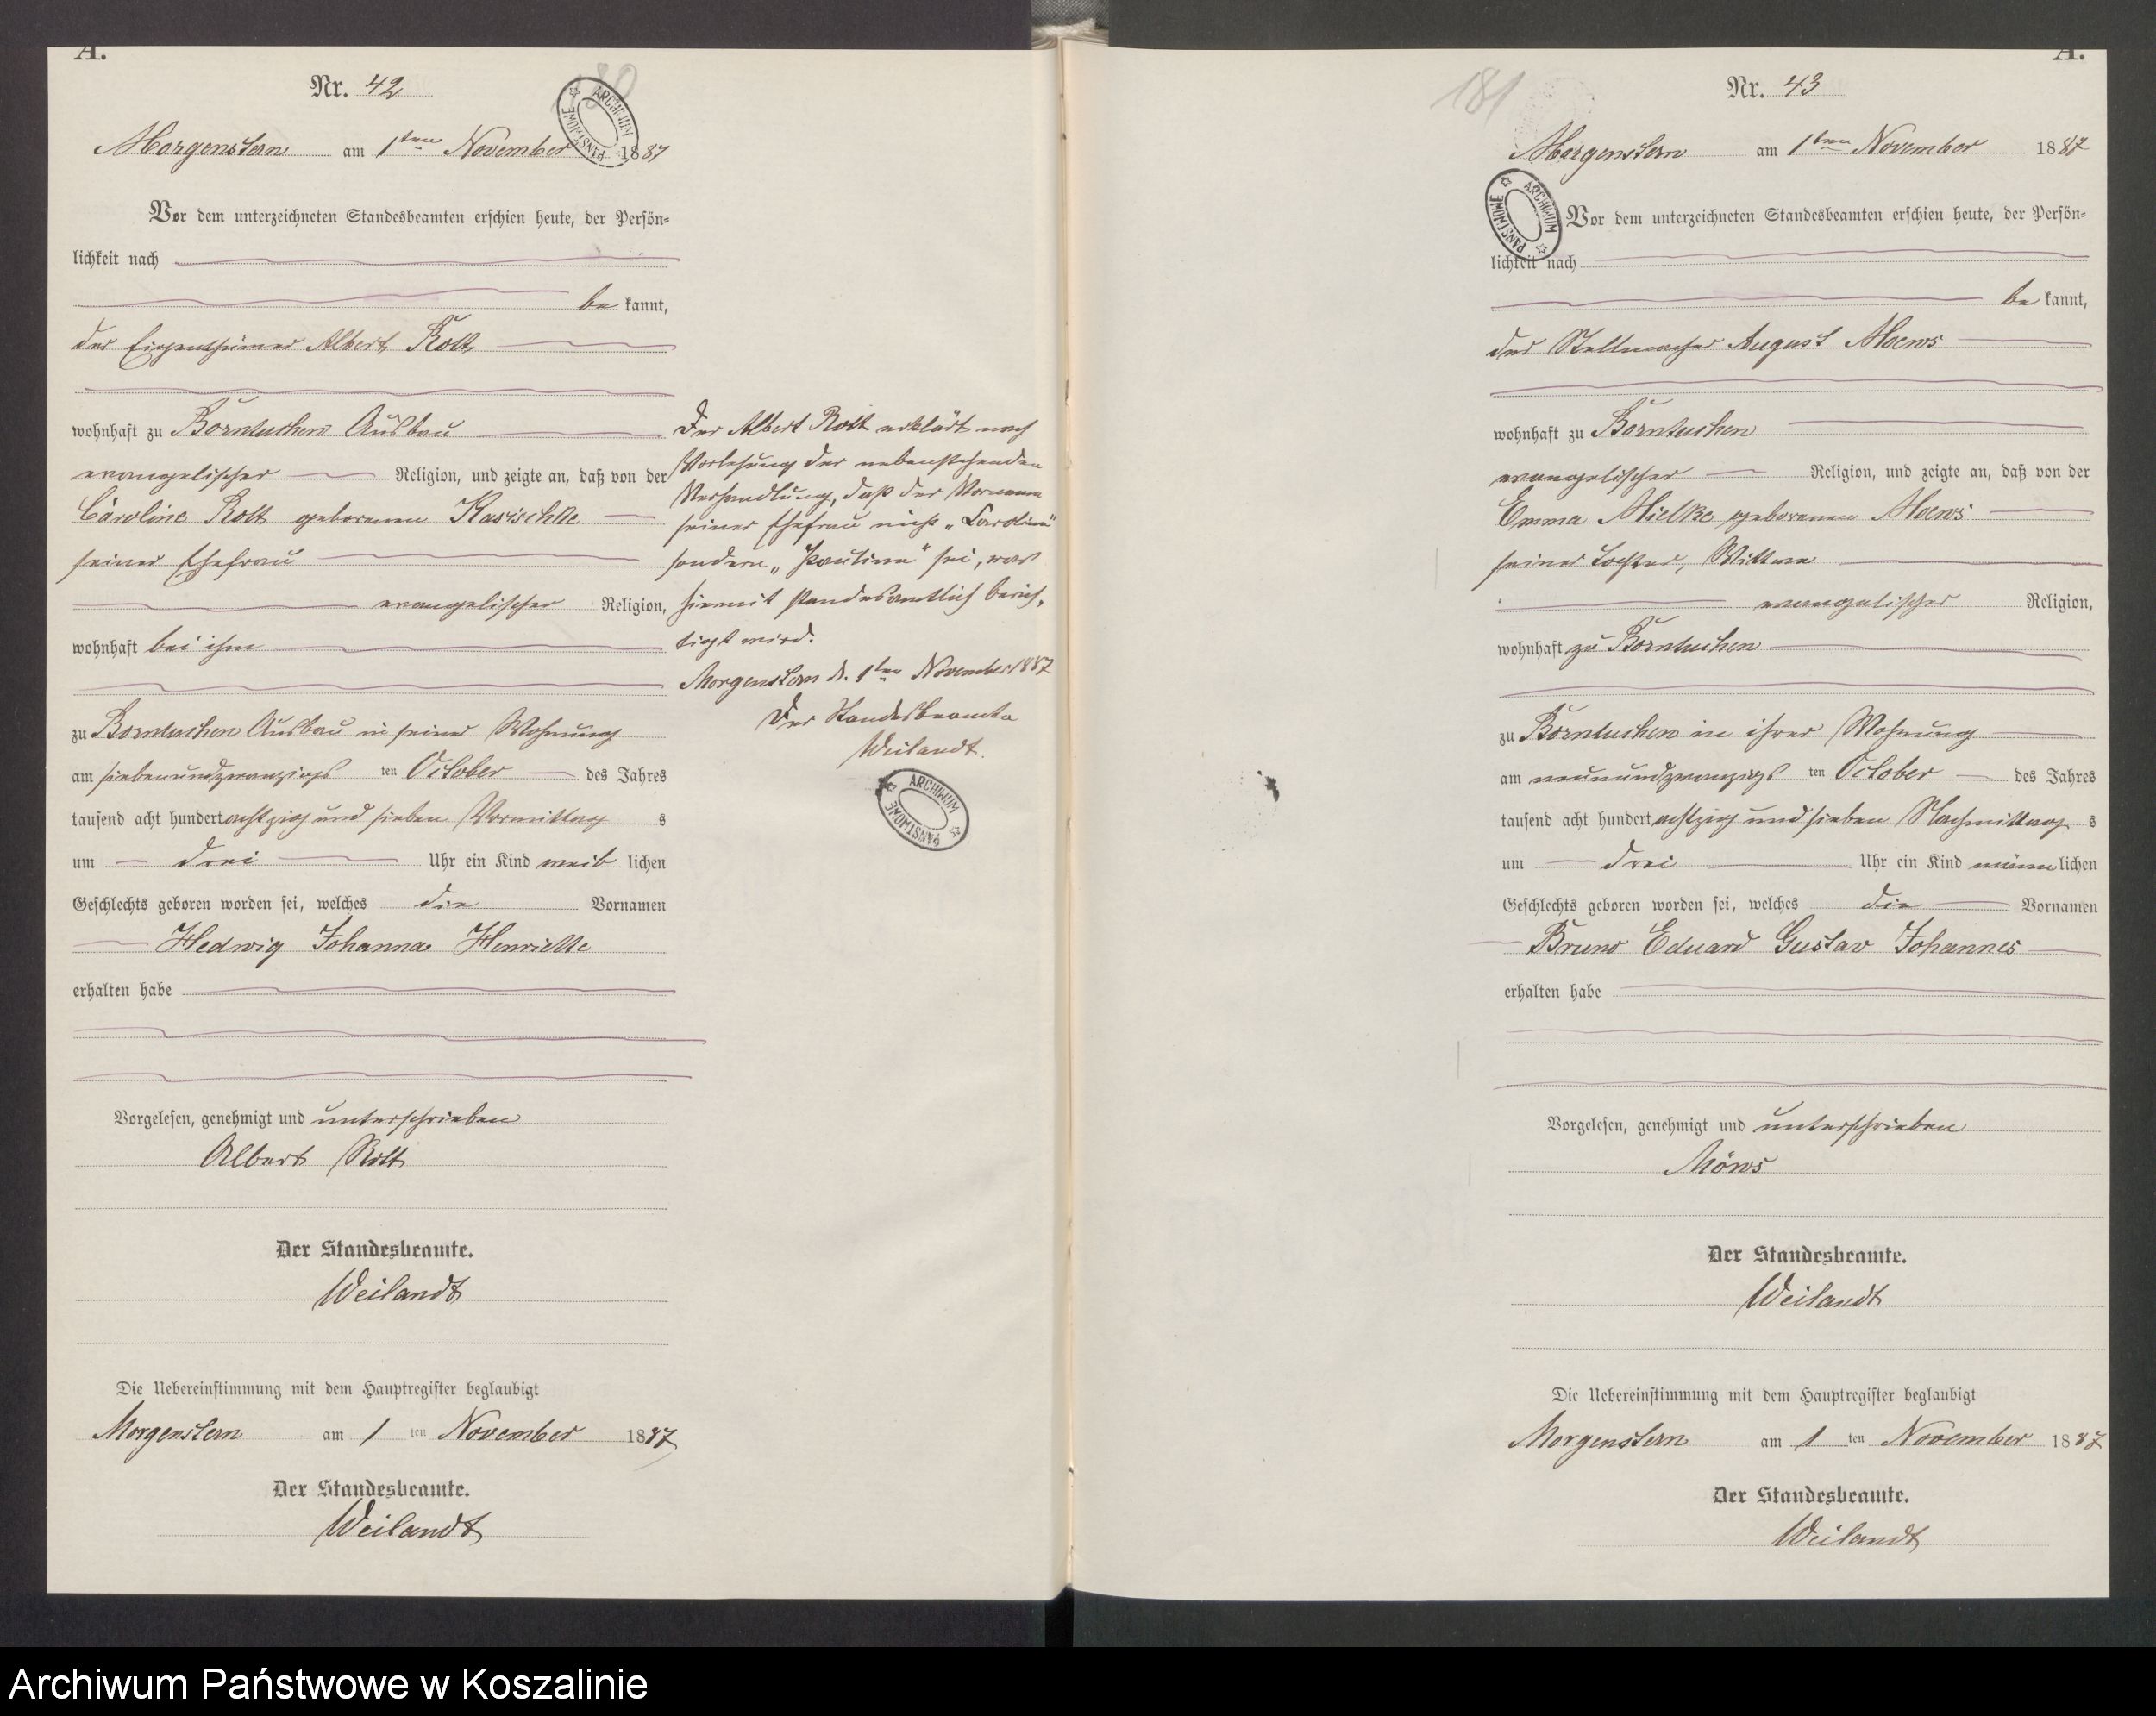 A.
Nr. 42
180
Morgenstern am 1ten November 1887
Vor dem unterzeichneten Standesbeamten erschien heute, der Persön=
lichkeit nach
be kannt,
der Eigenthümer Albert Rott
wohnhaft zu Borntuchen Ausbau
evangelischer Religion, und zeigte an, daß von der
Caroline Rott geborenen Kasischke
seiner Ehefrau
evangelischer Religion,
wohnhaft bei ihm
zu Borntuchen Ausbau in seiner Wohnung
am siebenundzwanzigs ten October des Jahres
tausend acht hundert achtzig und sieben Vormittag s
um drei Uhr ein Kind weib lichen
Geschlechts geboren worden sei, welches die Vornamen
Hedwig Johanna Henriette
erhalten habe
Vorgelesen, genehmigt und unterschrieben
Albert Rott
Der Standesbeamte.
Weilandt
Die Uebereinstimmung mit dem Hauptregister beglaubigt
Morgenstern am 1 ten November 1887
Der Standesbeamte.
Weilandt
Der Albert Rott erklärt nach
Vorlesung der nebenstehenden
Verhandlung, daß der Vorname
seiner Ehefrau nicht „Caroline"
sondern „Pauline" sei, was
hiermit standesamtlich berich=
tigt wird.
Morgenstern d. 1ten November 1887
Der Standesbeamte
Weilandt.
ARCHIWUM PAŃSTWOWE
ARCHIWUM PAŃSTWOWE
A.
181
Nr. 43
Morgenstern am 1ten November 1887
ARCHIWUM PAŃSTWOWE
Vor dem unterzeichneten Standesbeamten erschien heute, der Persön=
lichkeit nach
be kannt,
der Stellmacher August Moews
wohnhaft zu Borntuchen
evangelischer Religion, und zeigte an, daß von der
Emma Mielke geborenen Moews
seiner Tochter, Wittwe
evangelischer Religion,
wohnhaft zu Borntuchen
zu Borntuchen in ihrer Wohnung
am neunundzwanzigs ten October des Jahres
tausend acht hundert achtzig und sieben Nachmittag s
um drei Uhr ein Kind männ lichen
Geschlechts geboren worden sei, welches die Vornamen
Bruno Eduard Gustav Johannes
erhalten habe
Vorgelesen, genehmigt und unterschrieben
Möws
Der Standesbeamte.
Weilandt
Die Uebereinstimmung mit dem Hauptregister beglaubigt
Morgenstern am 1 ten November 1887
Der Standesbeamte.
Weilandt
Archiwum Państwowe w Koszalinie